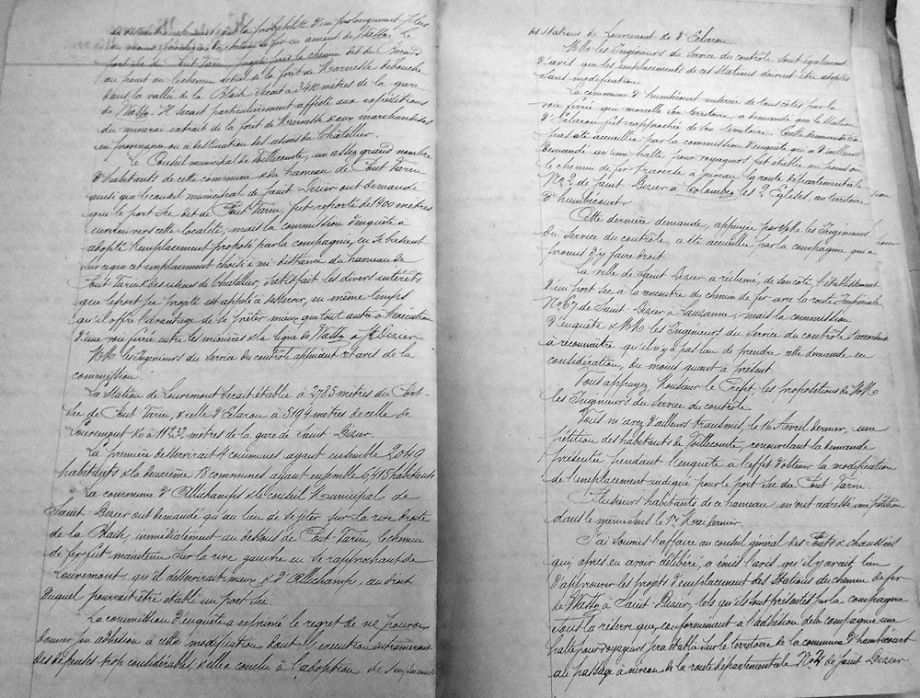 la probabilité d'un prolongement
du chemin de fer en amont de Wassy. Le
port sec de Pont Varin, projeté près le chemin dit du
au point où le chemin actuel de la forêt de débouche
dans la vallée de la Blaise, serait à 3410 mètres de la gare
de Wassy. Il serait particulièrement affecté aux expéditions
du minerai extrait de la forêt de & aux marchandises
en provenance ou à destination des usines du Châtelier.
Le Conseil municipal de Voillecomte, un assez grand nombre
d'habitants de cette commune & du hameau de Pont Varin
ainsi que le conseil municipal de Saint Dizier ont demandé
que le port sec dit de Pont Varin, fut reporté de 400 mètres
environ vers cette localité, mais la commission d'enquête a
adopté l'emplacement proposé par la compagnie, en se basant
sur ce que cet emplacement choisi à mi-distance du hameau de
Pont Varin & des usines du Châtelier, satisfait les divers intérêts
que le port sec projeté est appelé à desservir, en même temps
qu'il offre l'avantage de se prêter mieux que tout autre à l'exécution
d'une voie ferrée entre les minières & la ligne de Wassy à St Dizier
MM. les Ingénieurs du service du contrôle appuient cet avis de la
commission.
La station de Louvemont serait établie à 3785 mètres du Port
sec de Pont Varin, & celle d'Eclaron à 5194 mètres de celle de
Louvemont & à 11232 mètres de la gare de Saint Dizier.
La première desservirait 4 communes ayant ensemble 2049
habitants & la deuxième 18 communes ayant ensemble 6418 habitants
La commune d'Allichamps & le conseil municipal de
Saint Dizier ont demandé qu'au lieu de se jeter sur la rive droite
de la Blaise, immédiatement au dessous de Pont Varin, le chemin
de fer fut maintenu sur la rive gauche en se rapprochant de
Louvemont, qu'il desservirait mieux & d'Allichamps, au droit
duquel pourrait être établi un port sec.
La commission d'enquête a exprimé le regret de ne pouvoir
donner son adhésion à cette modification dont l'exécution entraînerait
des dépenses trop considérables, & elle a conclu à l'adoption des emplacements
des stations de Louvemont & d'Eclaron.
MM. les Ingénieurs du service du contrôle sont également
d'avis que les emplacements de ces stations doivent être adoptés
sans modification.
La commune d'Humbécourt enserrée de tous côtés par la
voie ferrée qui morcelle son territoire, a demandé que la station
d'Eclaron fut rapprochée de son territoire. Cette demande n'a
pas été accueillie par la commission d'enquête qui a d'ailleurs
demandé qu'une halle pour voyageurs fut établie au point où
le chemin de fer traverse à niveau la route départementale
No 2 de Saint Dizier à Colombey les 2 Eglises, au territoire
d'Humbécourt.
Cette dernière demande, appuyée par MM. les Ingénieurs
du service du contrôle, a été accueillie par la compagnie qui a
promis d'y faire droit.
La ville de Saint Dizier a réclamé, de son côté, l'établissement
d'un port sec à la rencontre du chemin de fer avec la route Impériale
No 67 de Saint Dizier à Lausanne; mais la commission
d'enquête & MM. les Ingénieurs du service du contrôle s'accordent
à reconnaître qu'il n'y a pas lieu de prendre cette demande en
considération, du moins quant à présent.
Vous appuyez, Monsieur le Préfet, les propositions de MM.
les Ingénieurs du service du contrôle.
Vous m'avez d'ailleurs transmis, le 16 Avril dernier, une
pétition des habitants de Voillecomte, renouvelant la demande
présentée pendant l'enquête à l'effet d'obtenir la modification
de l'emplacement indiqué pour le port sec du Pont Varin.
Plusieurs habitants de ce hameau m'ont adressé une pétition
dans le même but le 1er Mai dernier.
J'ai soumis l'affaire au conseil général des Ponts & chaussées
qui, après en avoir délibéré, a émis l'avis qu'il y avait lieu
d'approuver les projets d'emplacement des stations du chemin de fer
de Wassy à Saint Dizier, tels qu'ils sont présentés par la compagnie
sous la réserve que, conformément à l'adhésion de la compagnie une
halle pour voyageurs sera établie sur le territoire de la commune d'Humbécourt
au passage à niveau de la route départementale No 2 de Saint Dizier